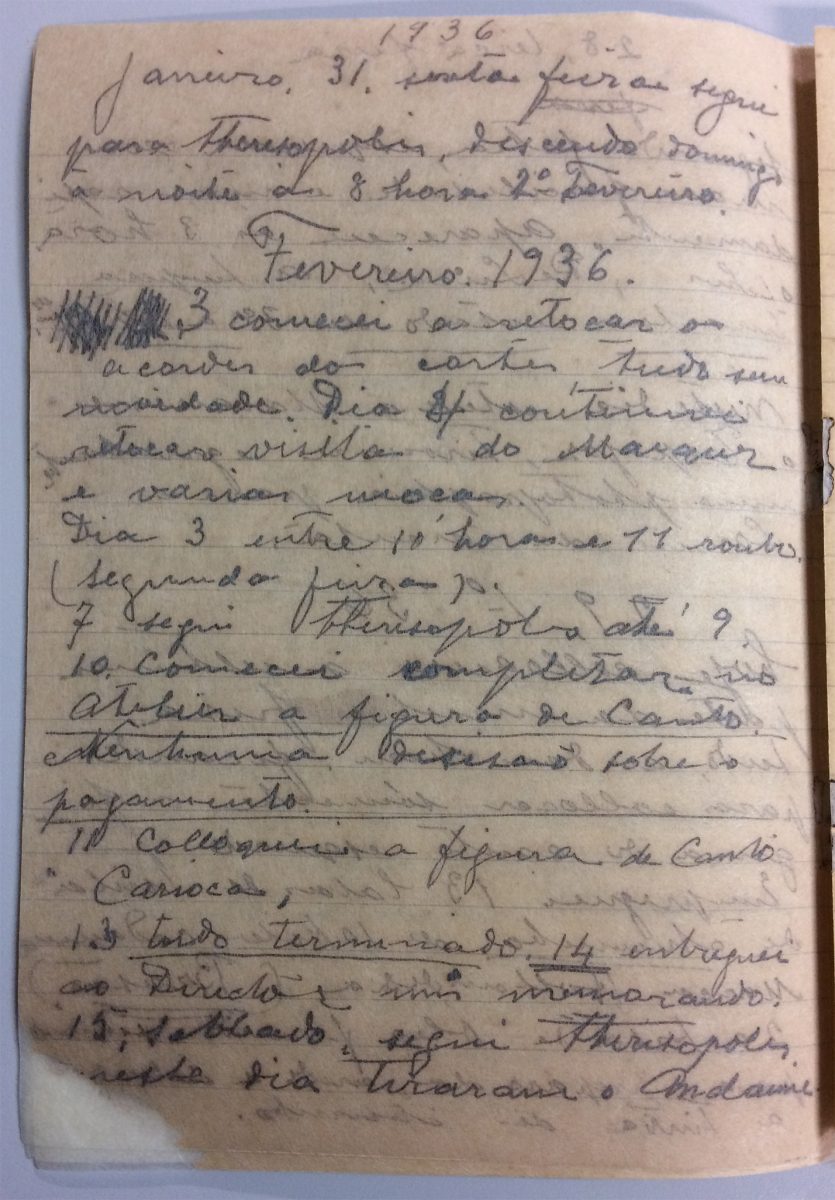 1936
Janeiro. 31. sexta feira segui
para Therisopolis, descendo domingo
à noite as 8 hora 2º Fevereiro.
Fevereiro. 1936.
3 comecei a retocar os
acordes do cortes, tudo sem
novidade. Dia 4 continuei
retocar visita do Marquez
e varias moças
Dia 3 entre 10 horas e 11 roubo.
(segunda feira).
7 segui Therisopolis até 9
10. Comecei completar no
atelier a figura de Canto.
Nenhuma desisaõ sobre o
pagamento.
11 Colloquei a figura de Canto
Carioca,
13 tudo terminado. 14 entreguei
ao Director um memorando.
15, sabbado, segui Therisopolis
neste dia tiraram o Andaime